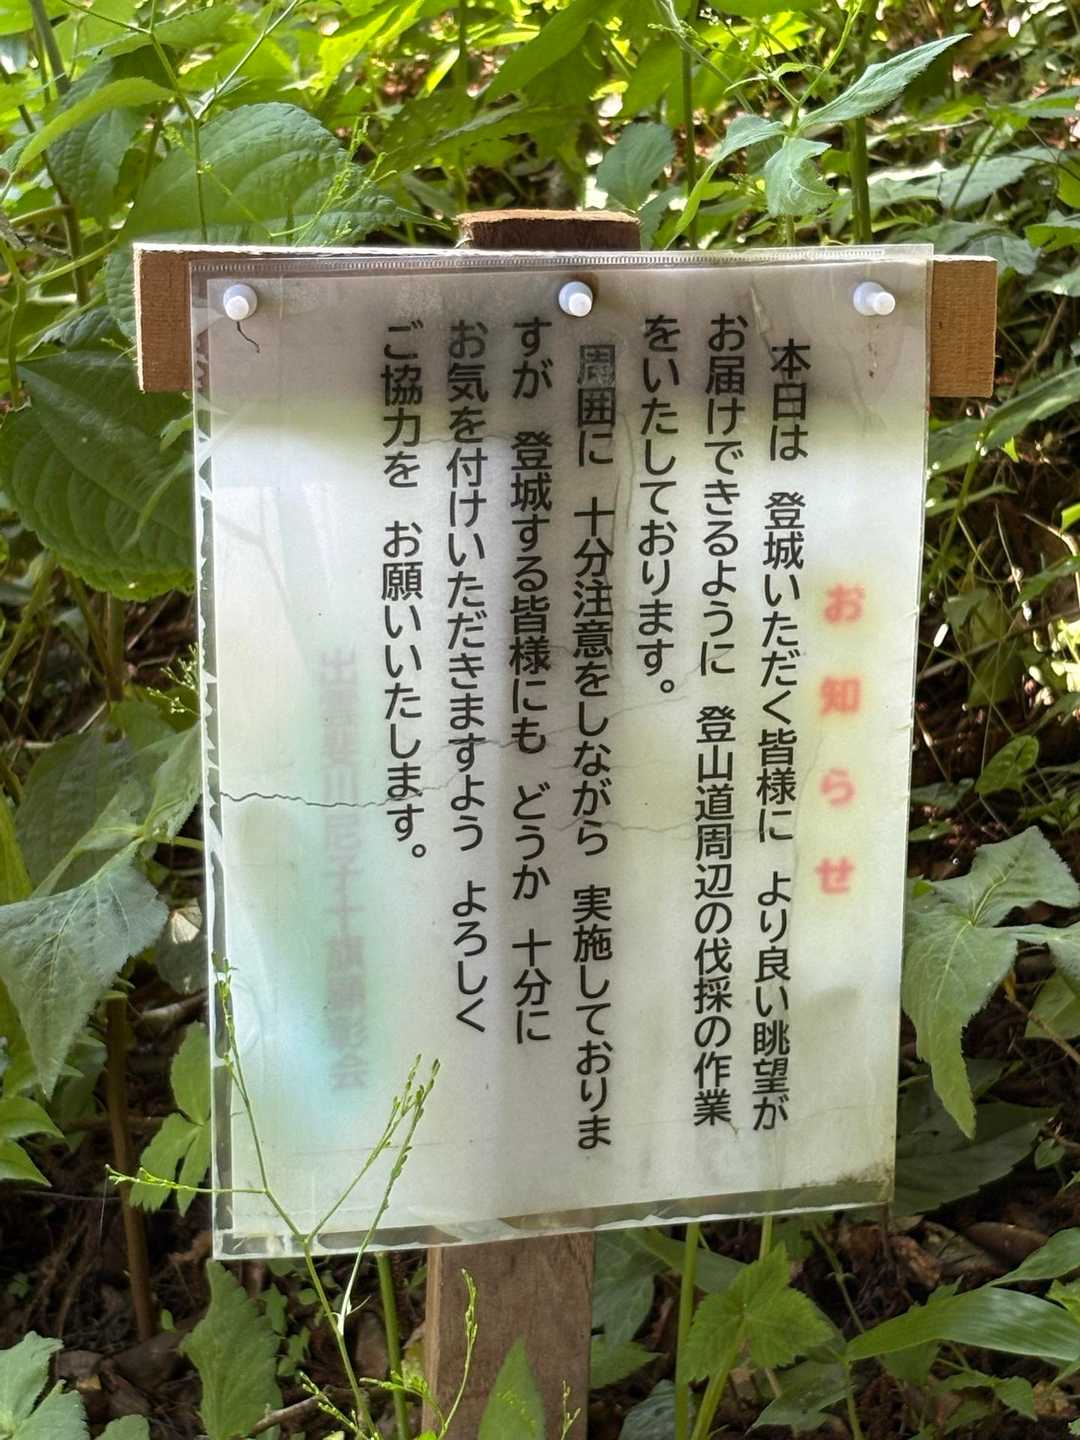 お知らせ
本日は 登城いただく皆様に より良い眺望が
お届けできるように 登山道周辺の伐採の作業
をいたしております。
周囲に 十分注意をしながら 実施しておりま
すが 登城する皆様にも どうか 十分に
お気を付けいただきますよう よろしく
ご協力を お願いいたします。